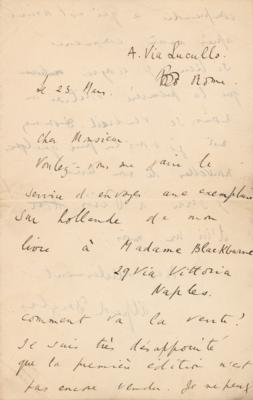 A. Via Lucullo.
Rome.
le 23 Mars.
Cher Monsieur
Voulez-vous me faire le
service d'envoyer une exemplaire
sur hollande de mon
livre à Madame Blackburne
29 Via Vittoria
Naples.
comment va la vente?
Je suis très désappointé
que la première edition n'est
pas encore vendue. Je ne peux